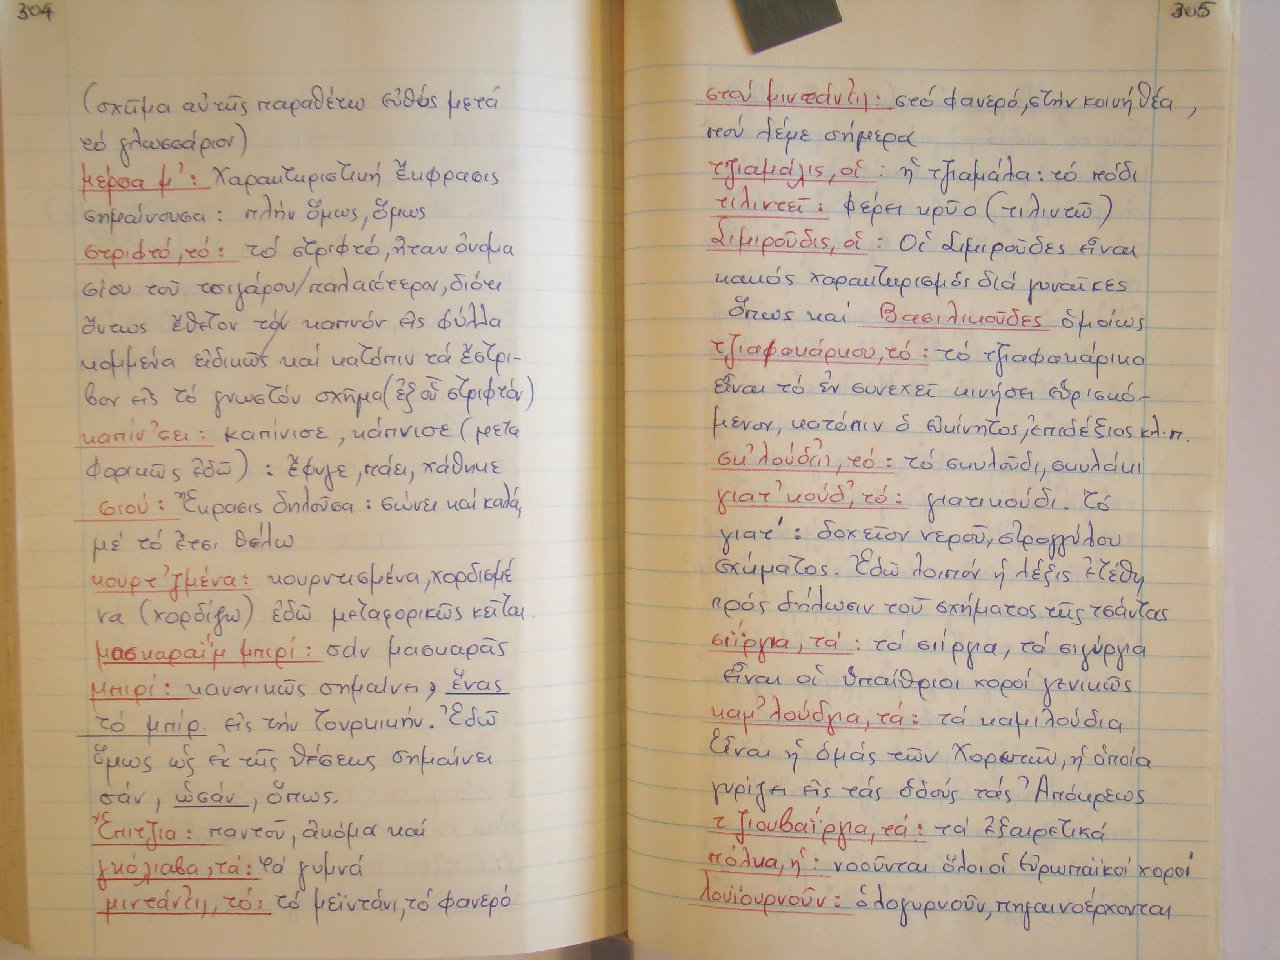 304
(σχῆμα αὐτῆς παραθέτω εὐθύς μετά
τό γλωσσάριον)
μέρσα μ': Χαρακτηριστική ἔκφρασις
σημαίνουσα: πλήν ὅμως, ὅμως
στριφτό, τό: τό στριφτό, ἦταν ὄνομα
σίου τοῦ τσιγάρου/παλαιότερον, διότι
ὄντως ἔθετον τόν καπνόν εἰς φύλλα
κομμένα εἰδικῶς καί κατόπιν τά ἔστρι-
βον εἰς τό γνωστόν σχῆμα (ἐξ οὗ στριφτόν)
καπίν'σει: καπίνισε, κάπνισε (μετα
φορικῶς ἐδῶ): ἔφυγε, πάει, χάθηκε
σιού: Ἔκρασις δηλοῦσα: σώνει καί καλά,
μέ τό ἔτσι θέλω
κουρτ'ζμένα: κουρντισμένα, χορδισμέ
να (χορδίζω) ἐδῶ μεταφορικῶς κεῖται.
μασκαραΐμ μπιρί: σάν μασκαρᾶς
μπιρί: κανονικῶς σημαίνει, ἕνας
τό μπίρ. εἰς τήν Τουρκικήν. Ἐδῶ
ὅμως ὡς ἐκ τῆς θέσεως σημαίνει
σάν, ὡσάν, ὅπως.
Ἔπιτζια: παντοῦ, ἀκόμα καί
γκόλιαβα, τά: τά γυμνά
μιντάντι, τό: τό μεϊντάνι, τό φανερό
305
στού μιντάντι: στό φανερό, στήν κοινή θέα,
πού λέμε σήμερα
τζιαμάλις, οἱ: ἡ τζιαμάλα: τό πόδι
τιλιντεῖ: φέρει κρῦο (τιλιντῶ)
Σιμιροῦδις, οἱ: Οἱ Σιμιροῦδες εἶναι
κακός χαρακτηρισμός διά γυναῖκες
ὅπως καί Βασιλικοῦδες ὁμοίως
τζιαφακάρκου, τό: τό τζιαφακάρικο
εἶναι τό ἐν συνεχεῖ κινήσει εὑρισκό-
μενον, κατόπιν ὁ εὐκίνητος, ἐπιδέξιος κλ.π.
σκ'λούδ', τό: τό σκυλοῦδι, σκυλάκι
γιατ'κούδ', τό: γιατικούδι. Τό
γιατ': δοχεῖον νεροῦ, στρογγύλου
σχήματος. Ἐδῶ λοιπόν ἡ λέξις ἐτέθη
πρός δήλωσιν τοῦ σχήματος τῆς τσάντας
σιΐργια, τά: τά σιίργια, τά σιγύργια
εἶναι οἱ ὑπαίθριοι χοροί γενικῶς
καμ'λούδγια, τά: τά καμιλούδια
Εἶναι ἡ ὁμάς τῶν Χορευτῶν, ἡ ὁποία
γυρίζει εἰς τάς ὁδούς τάς Ἀπόκρεως
τζιουβαΐργια, τά: τά ἐξαιρετικά
πόλκα, ἡ: νοοῦνται ὅλοι οἱ Εὐρωπαϊκοί χοροί
λουϊουρνοῦν: ὁλογυρνοῦν, πηγαινοέρχονται